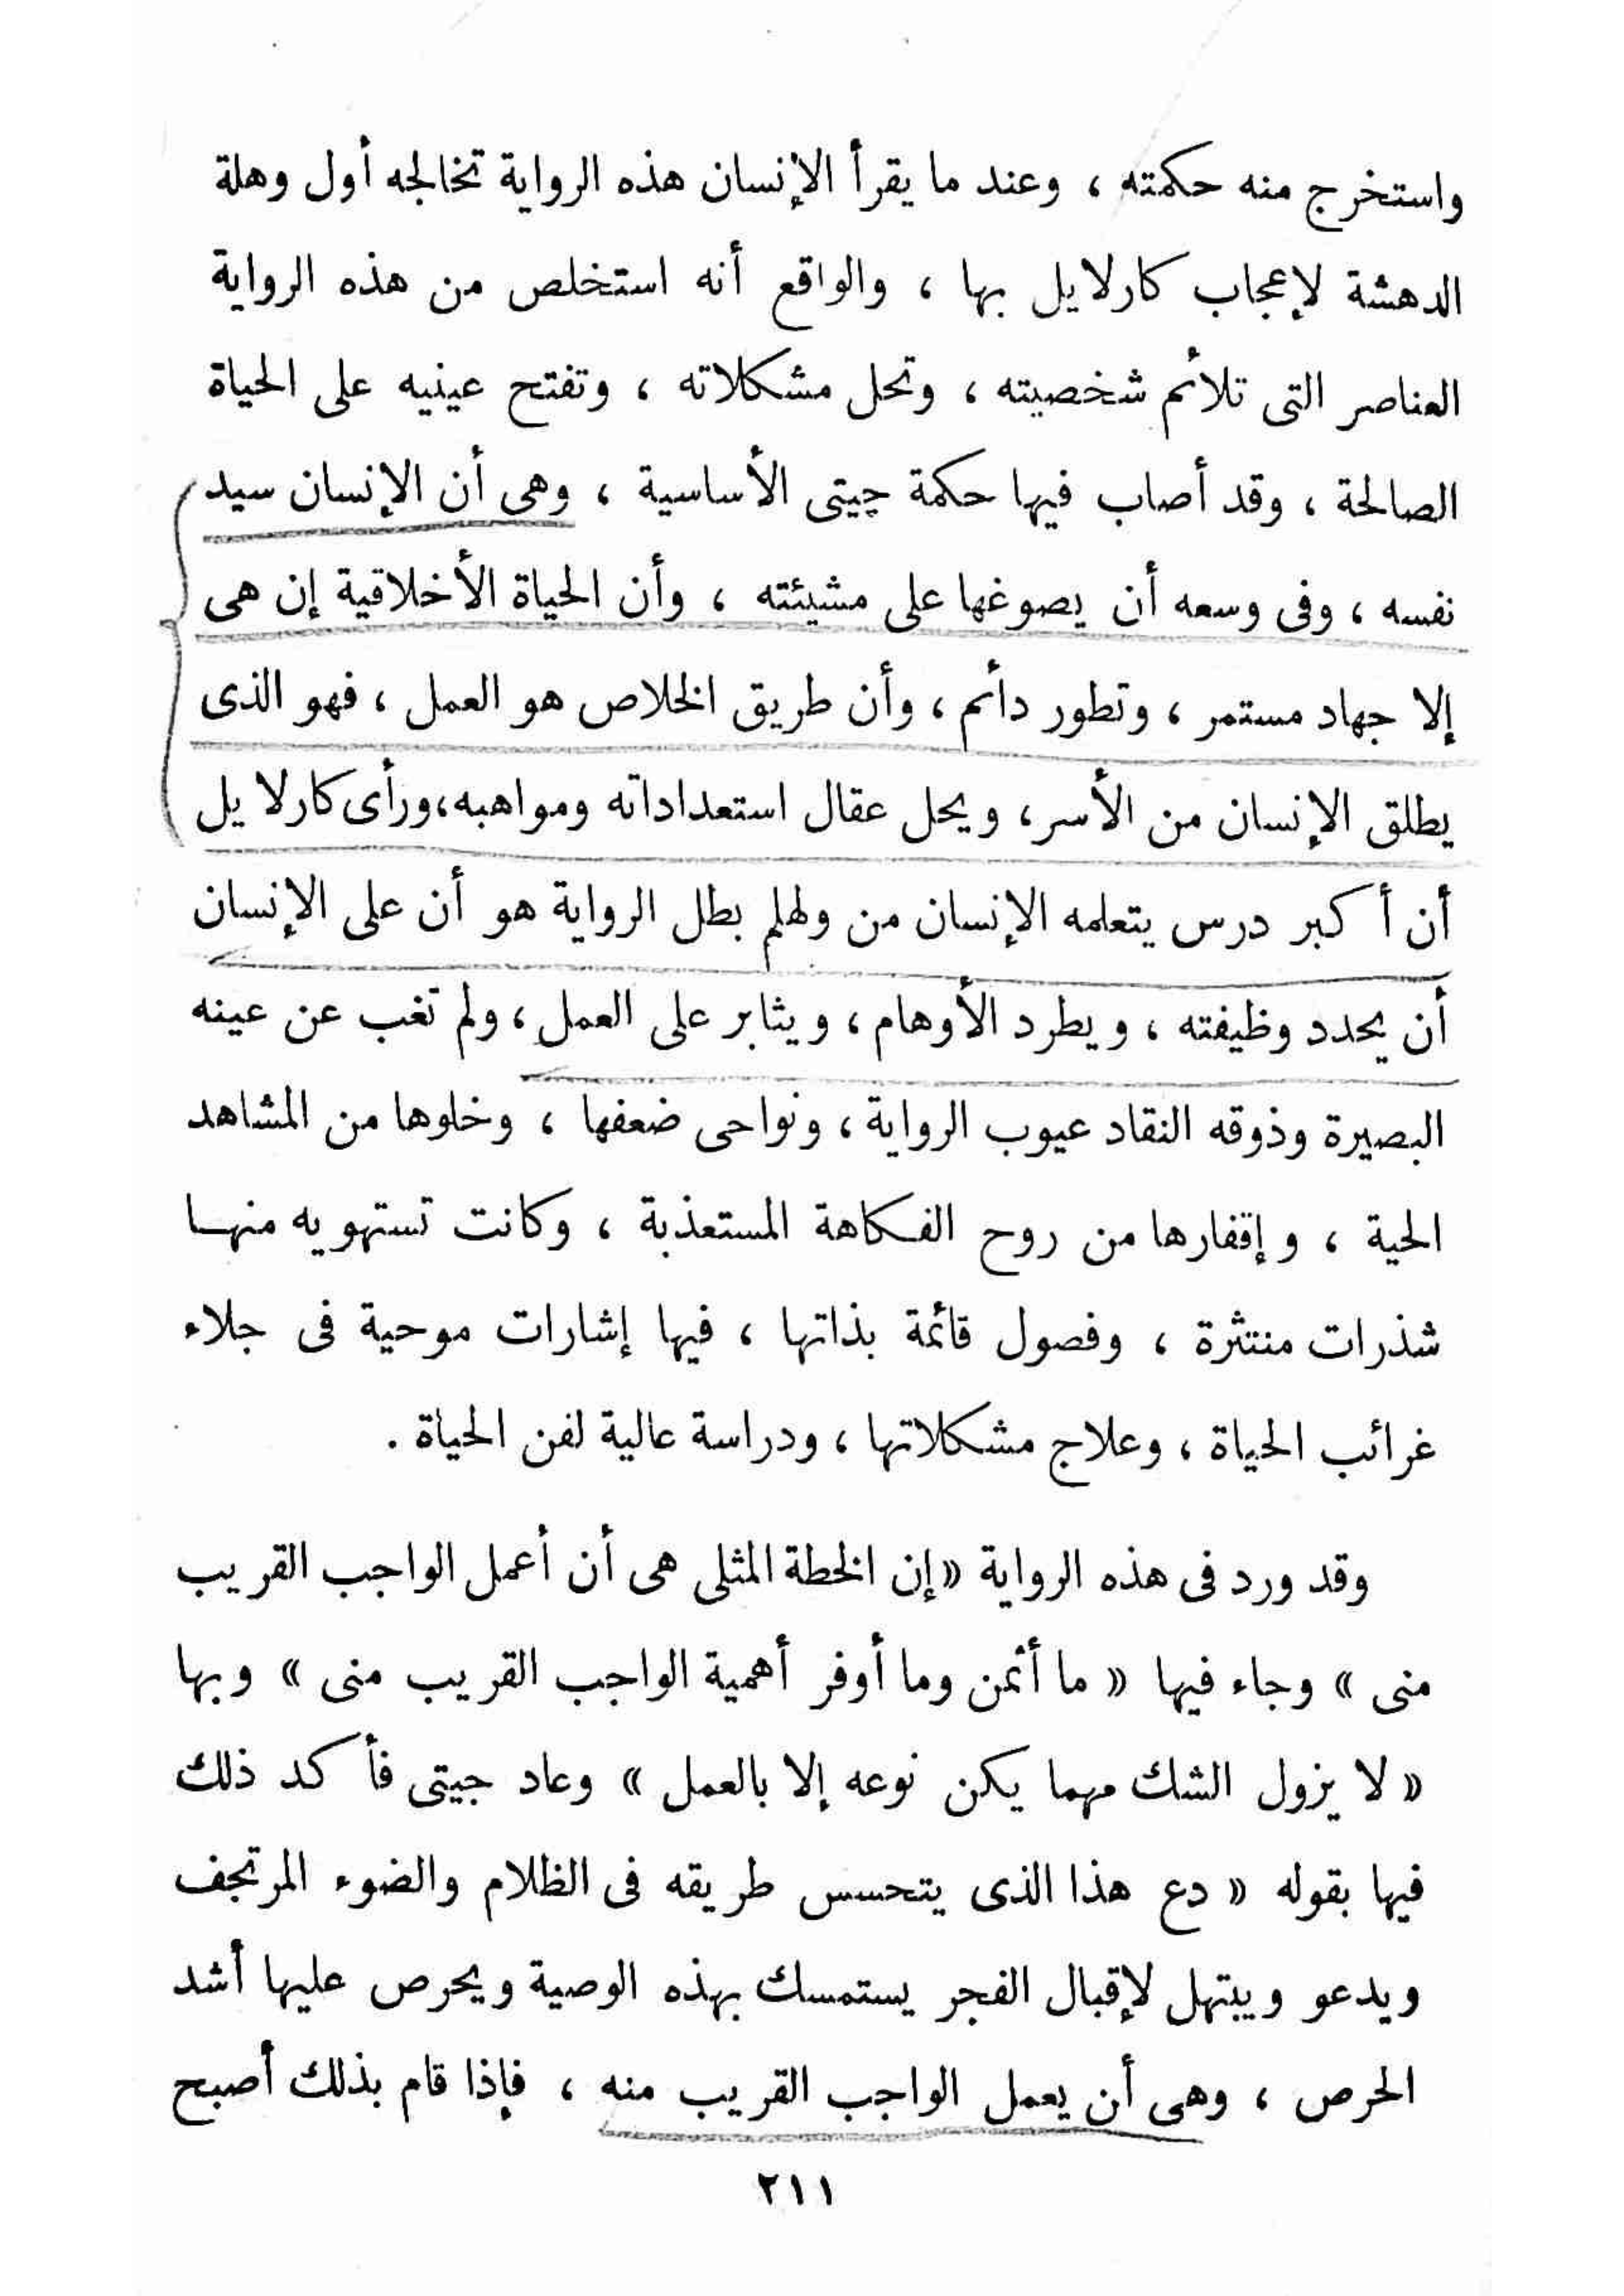 واستخرج منه حكمته ، وعند ما يقرأ الإنسان هذه الرواية تخالجه أول وهلة
الدهشة لإعجاب كارلايل بها ، والواقع أنه استخلص من هذه الرواية
العناصر التى تلائم شخصيته ، وتحل مشكلاته ، وتفتح عينيه على الحياة
الصالحة ، وقد أصاب فيها حكمة چيتى الأساسية ، وهى أن الإنسان سيد
نفسه ، وفى وسعه أن يصوغها على مشيئته ، وأن الحياة الأخلاقية إن هى
إلا جهاد مستمر ، وتطور دائم ، وأن طريق الخلاص هو العمل ، فهو الذى
يطلق الإنسان من الأسر ، ويحل عقال استعداداته ومواهبه، ورأى كارلايل
أن أكبر درس يتعلمه الإنسان من ولهلم بطل الرواية هو أن على الإنسان
أن يحدد وظيفته ، ويطرد الأوهام ، ويثابر على العمل ، ولم تغب عن عينه
البصيرة وذوقه النقاد عيوب الرواية ، ونواحى ضعفها ، وخلوها من المشاهد
الحية ، وإقفارها من روح الفكاهة المستعذبة ، وكانت تستهويه منهـا
شذرات منتثرة ، وفصول قائمة بذاتها ، فيها إشارات موحية فى جلاء
غرائب الحياة ، وعلاج مشكلاتها ، ودراسة عالية لفن الحياة .
وقد ورد فى هذه الرواية « إن الخطة المثلى هى أن أعمل الواجب القريب
منى » وجاء فيها « ما أثمن وما أوفر أهمية الواجب القريب منى » وبها
« لا يزول الشك مهما يكن نوعه إلا بالعمل » وعاد جيتى فأكد ذلك
فيها بقوله « دع هذا الذى يتحسس طريقه فى الظلام والضوء المرتجف
ويدعو ويبتهل لإقبال الفجر يستمسك بهذه الوصية ويحرص عليها أشد
الحرص ، وهى أن يعمل الواجب القريب منه ، فإذا قام بذلك أصبح
٢١١